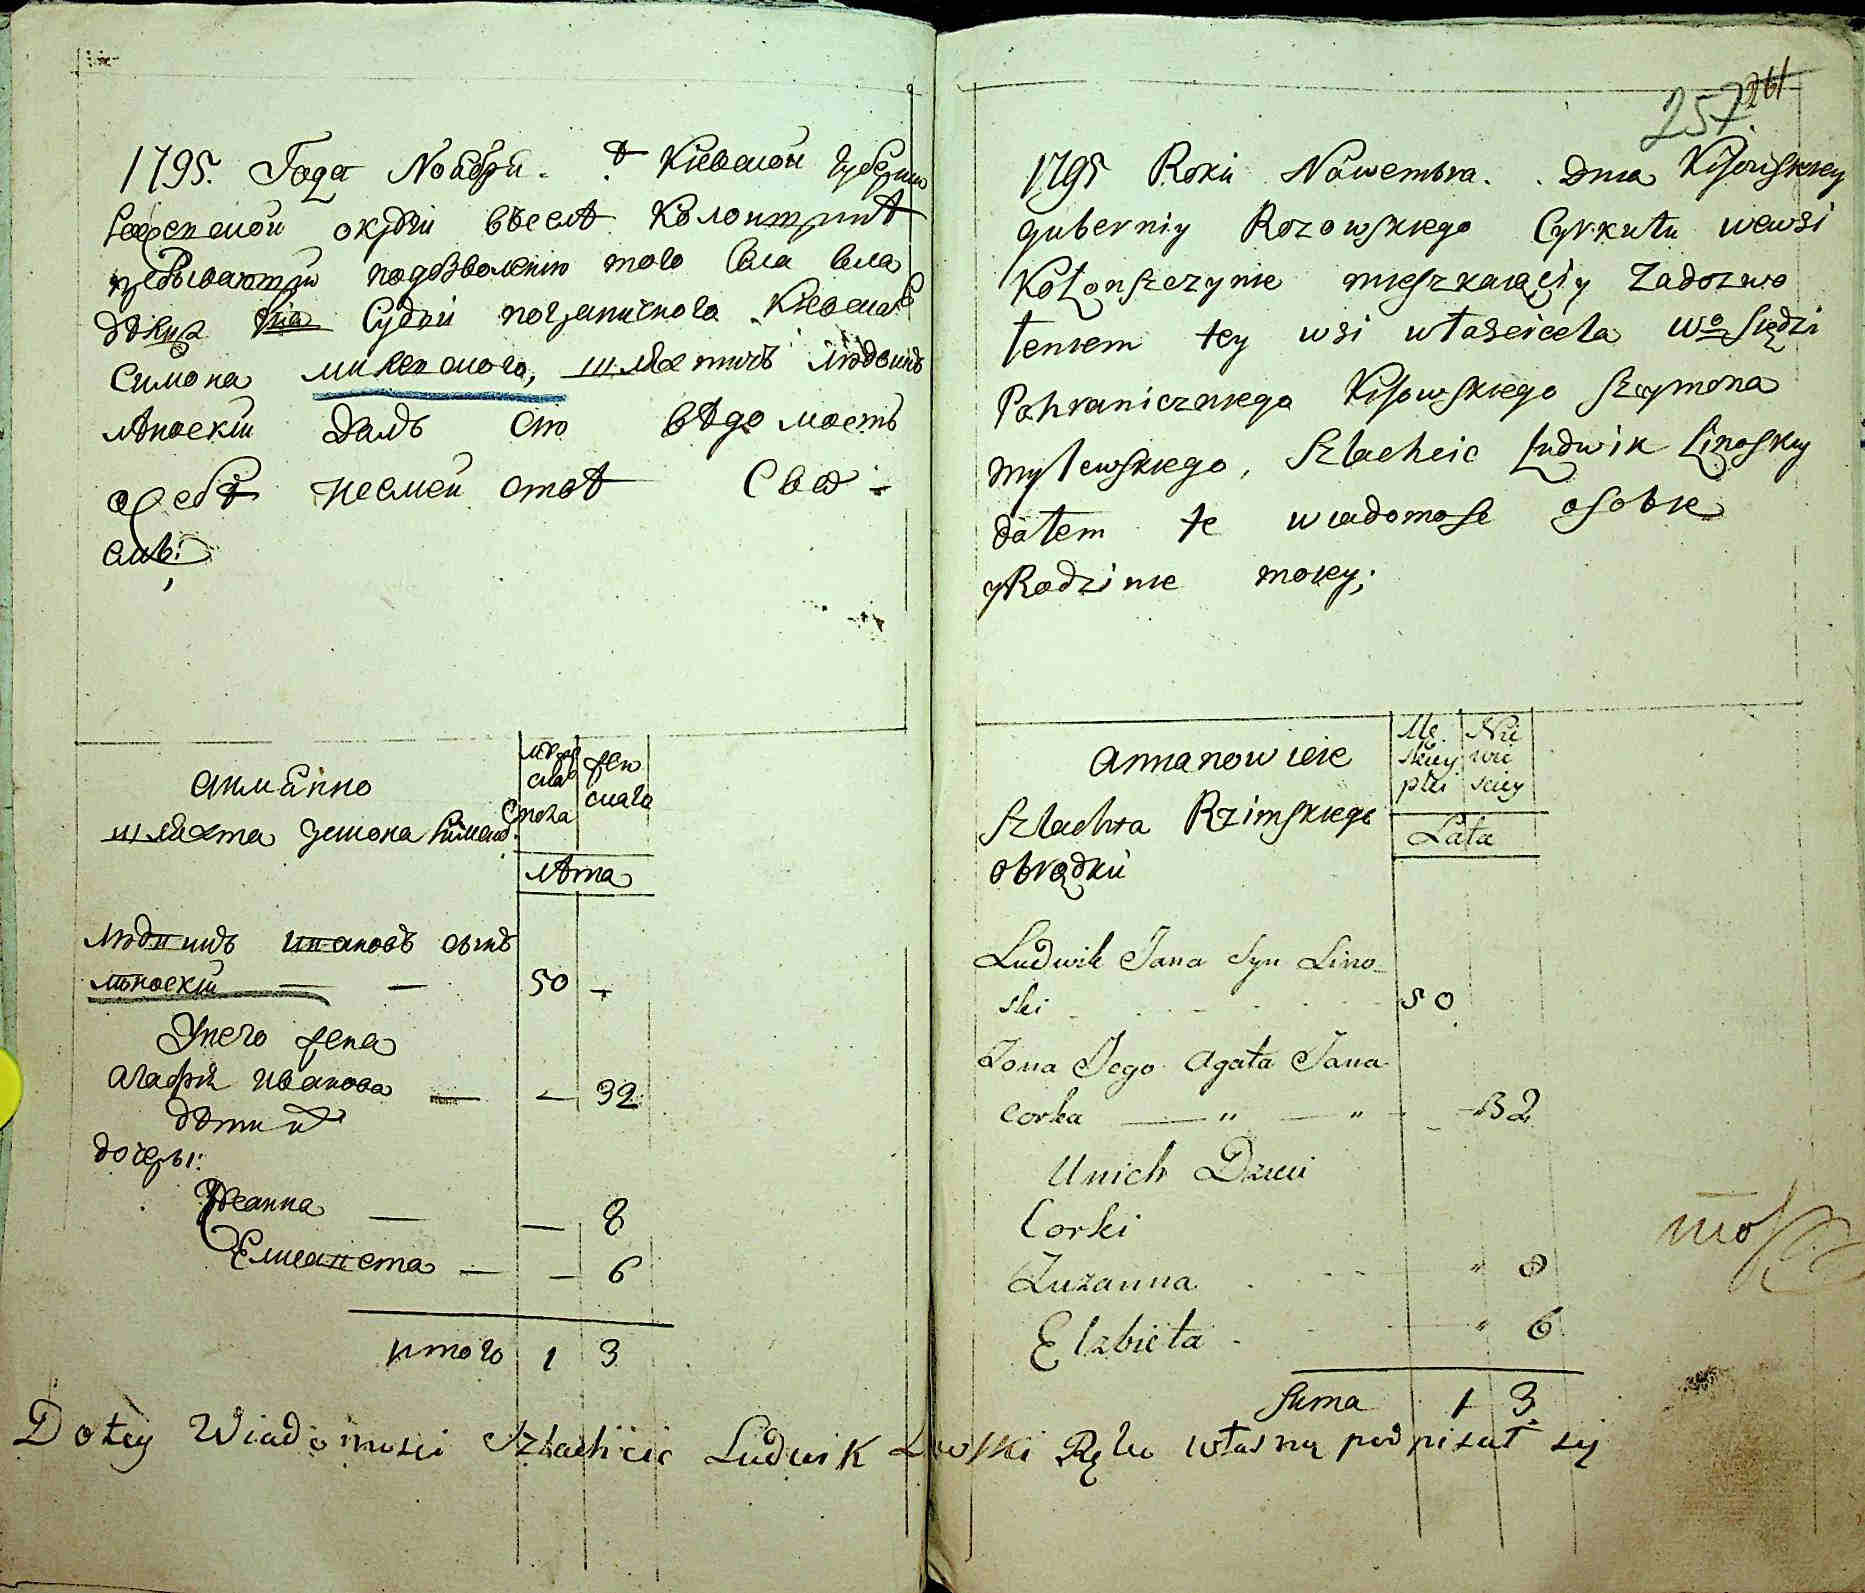 1795. Года Ноября. Киевской Губернии
округи въселѣ Колонтринѣ
подозволению того села села
Судьи пограничнаго Киевскаго
Симона шляхтичъ Людвикъ
Лѣноский далъ сию вѣдомость
осебѣ исемеи своей
именно
шляхта
мужескаго пола
женскаго
лѣта
Людвикъ Ивановъ сынъ
Лѣноский — — 50 —
Унего жена
Агафия Иванова — — 32
дѣти ихъ
дочеры:
Жеанна — — 8
Елисавета — — 6
итого 1 3
257 261
1795 Roku Nowembra. Dnia Kijowskiey
guberniy Rozowskiego Cyrkułu wewsi
Kołonszczynie mieszkaiąciy Zadozwo
leniem tey wsi własciciela Wo Sędzi
Pohranicznego Kijowskiego Szymona
Mylewskiego, Szlachcic Ludwik Linosky
dałem te wiadomosc osobie
yRodzinie moiey;
Annanowicie
Szlachta Rzimskiego
obrządku
Męskiey płci
Niewiesciey
Lata
Ludwik Jana Syn Lino-
ski 50
Zona Jego Agata Jana
Corka — " — " - 32
Unich Dzieci
Corki
Zuzanna " 8
Elzbieta " 6
Suma 1 3
Dotey Wiadomosci Szlachcic Ludwik Linoski Ręką własną podpisał się